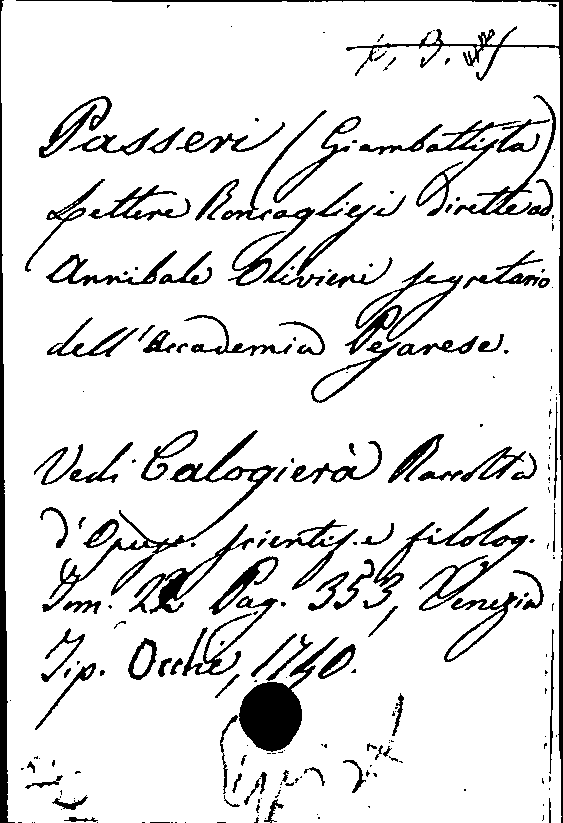 Passeri (Giambattista)
Lettere Roncagliesi dirette ad
Annibale Olivieri segretario
dell'Accademia Pesarese.
Vedi Calogierà Raccolta
d'Opusc. scientif. e filolog.
Tom. 22 Pag. 353, Venezia
Tip. Occhi, 1740.